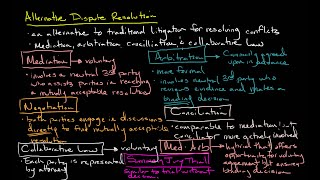 Alternative Dispute Resolution
- an alternative to traditional litigation for resolving conflicts
- Mediation, arbitration, conciliation & collaborative law
Mediation → voluntary
- involves a neutral 3rd party who assists parties in reaching a mutually acceptable resolution
Arbitration - Commonly agreed upon in advance
- most formal
- involves neutral 3rd party who reviews evidence and states a binding decision
Negotiation
- both parties engage in discussions directly to find mutually acceptable resolution
Conciliation
- comparable to mediation but conciliator more actively involved
Collaborative Law → voluntary
- Each party is represented by attorney
Med-Arb → hybrid that offers opportunity for voluntary agreement but ensures binding decision
Summary Jury Trial
Similar to trial without decision